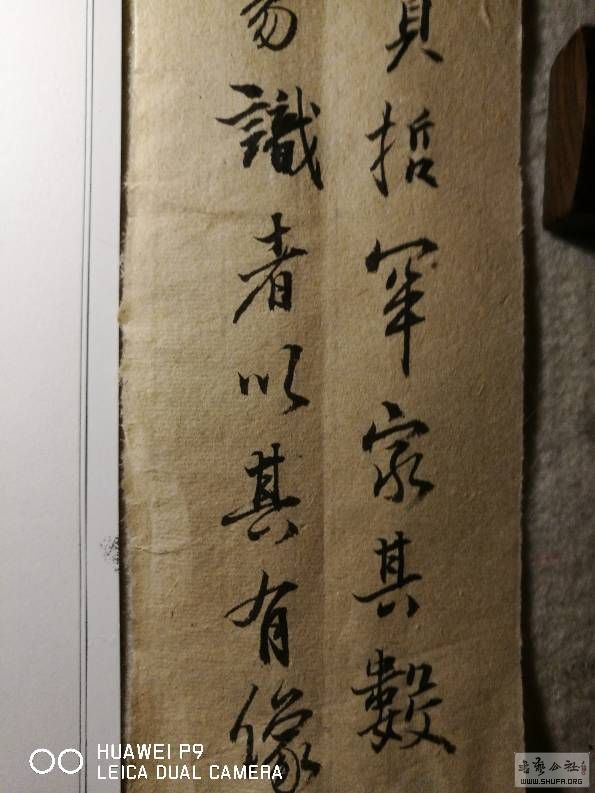 賢哲罕窮其數
易識者以其有像
HUAWEI P9
LEICA DUAL CAMERA
书艺公社
WWW.SHUFA.ORG